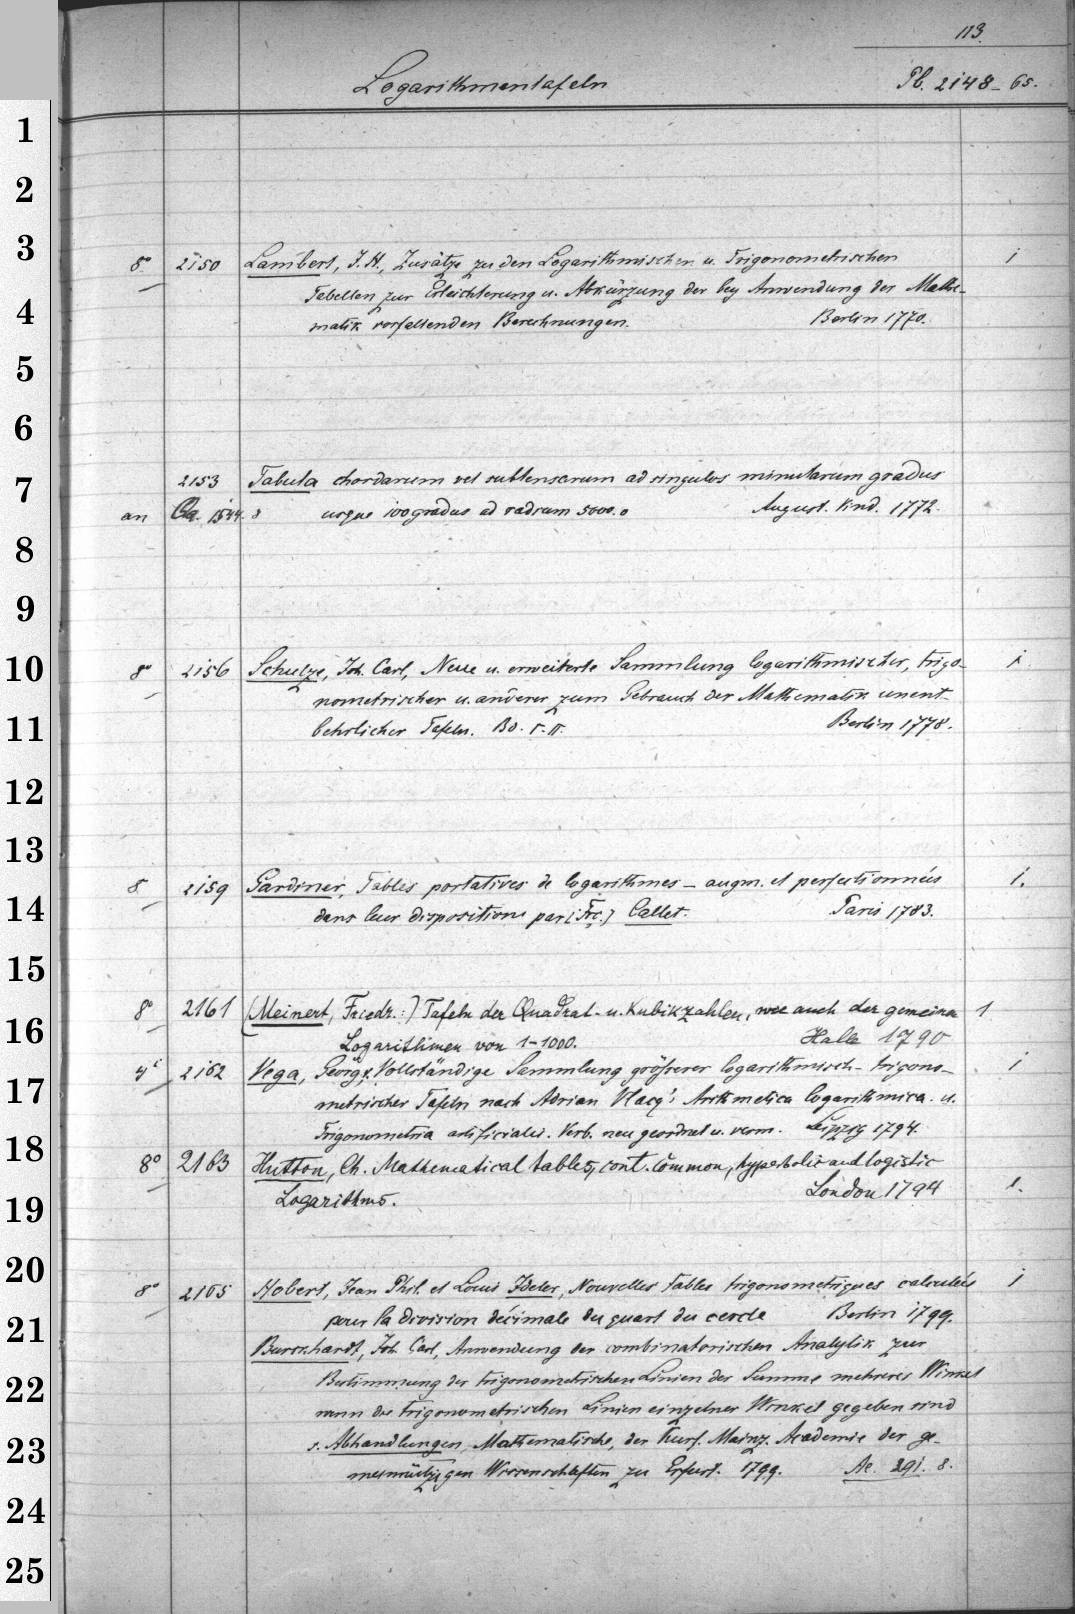 113.
Logarithmentafeln Pb. 2148-65.
8° 2150 Lambert, J. H., Zusätze zu den Logarithmischen u. Trigonometrischen 1
Tabellen zur Erleichterung u. Abkürzung der bey Anwendung der Mathe-
matik vorfallenden Berechnungen. Berlin 1770.
2153 Tabula chordarum vel subtensarum ad singulos minutarum gradus
an 1544. 8 usque 100 gradus ad radium 5000.0 August. Vind. 1772.
8° 2156 Schulze, Joh. Carl, Neue u. erweiterte Sammlung logarithmischer, trigo-
nometrischer u. anderer zum Gebrauch der Mathematik unent-
behrlicher Tafeln. Bd. I-II. Berlin 1778.
8 2159 Gardiner, Tables portatives de logarithmes - augm. et perfectionnées 1.
dans leur disposition par [Frc.] Callet. Paris 1783.
8° 2161 (Meinert, Friedr.:) Tafeln der Quadrat- u. Kubikzahlen, wie auch der gemeinen 1
Logarithmen von 1-1000. Halle 1790
4° 2162 Vega, Georg, Vollständige Sammlung grösserer logarithmisch-trigono- 1
metrischer Tafeln nach Adrian Vlacq's Arithmetica logarithmica. u.
Trigonometria artificialis. Verb. neu geordnet u. verm. Leipzig 1794.
8° 2163 Hutton, Ch. Mathematical tables, cont. common, hyperbolic and logistic
Logarithms. London 1794 1.
8° 2165 Hobert, Jean Phil. et Louis Ideler, Nouvelles Tables trigonometriques calculées 1
pour la division décimale du quart du cercle Berlin 1799.
Burckhardt, Joh. Carl, Anwendung der combinatorischen Analytik zur
Bestimmung der trigonometrischen Linien der Summe mehrerer Winkel
wenn die trigonometrischen Linien einzelner Winkel gegeben sind
s. Abhandlungen, Mathematische, der Kurf. Mainz. Academie der ge-
meinnützigen Wissenschaften zu Erfurt. 1799. Ac. 291. 8.
1
2
3
4
5
6
7
8
9
10
11
12
13
14
15
16
17
18
19
20
21
22
23
24
25